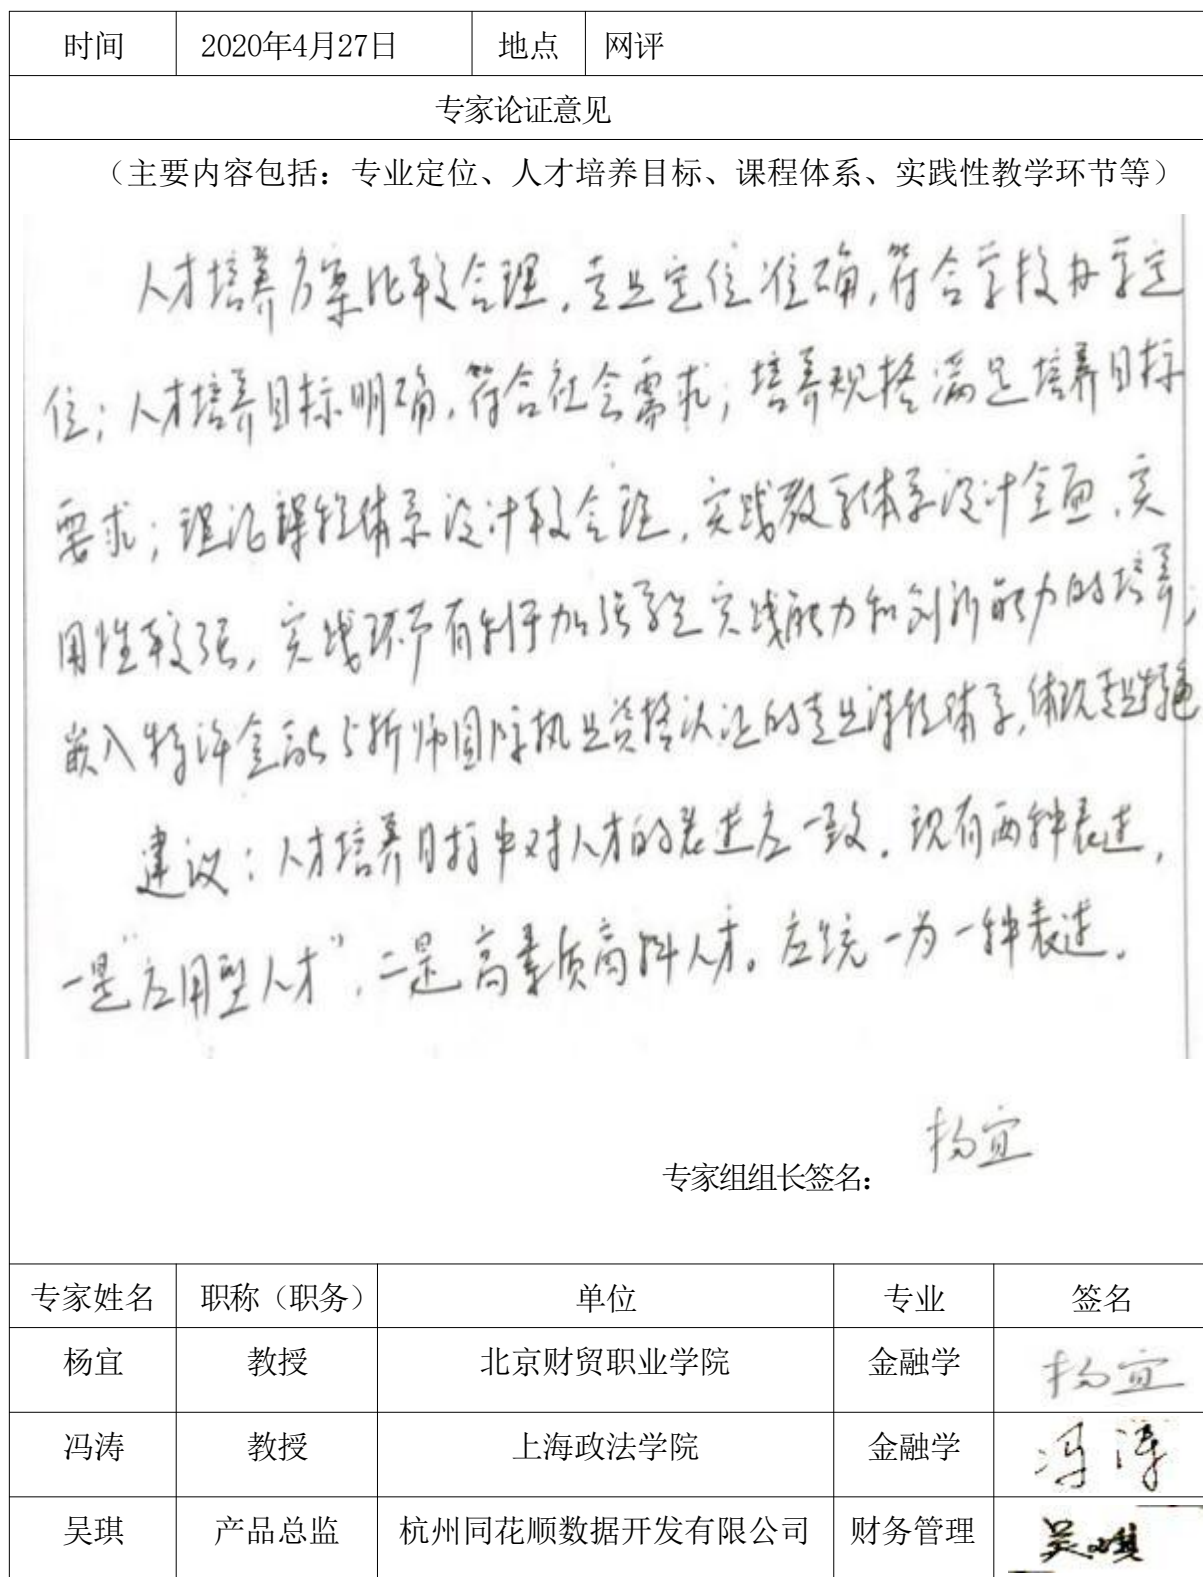 时间 2020年4月27日 地点 网评
专家论证意见
（主要内容包括：专业定位、人才培养目标、课程体系、实践性教学环节等）
人才培养方案比较合理，专业定位准确，符合学校办学定
位；人才培养目标明确，符合社会需求；培养规格满足培养目标
要求；理论课程体系设计较合理，实践教学体系设计全面，实
用性较强，实践环节有利于加强学生实践能力和创新能力的培养；
嵌入特许金融分析师国际执业资格认证的专业课程体系，体现专业特色
建议：人才培养目标中对人才的表述应一致。现有两种表述，
一是“应用型人才”，二是高素质高端人才。应统一为一种表述。
专家组组长签名： 杨宜
专家姓名 职称（职务） 单位 专业 签名
杨宜 教授 北京财贸职业学院 金融学 杨宜
冯涛 教授 上海政法学院 金融学 冯涛
吴琪 产品总监 杭州同花顺数据开发有限公司 财务管理 吴琪